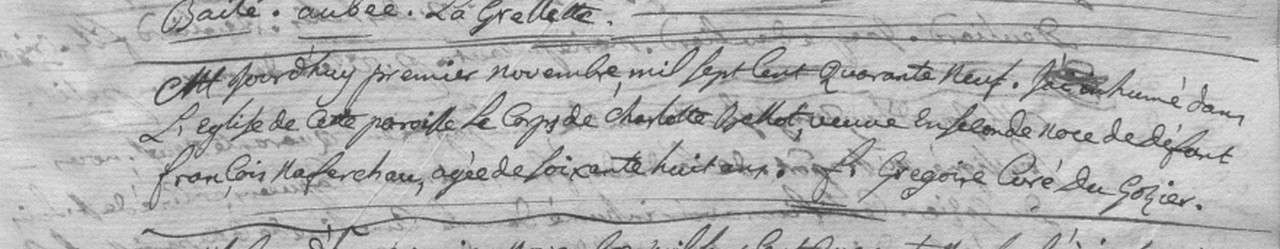 Baité. aubée. La Grellette.
Aujourdhuy premier novembre mil sept Cent Quarante Neuf. J'ai inhumé dans
L'eglise de Cette paroisse Le Corps de charlotte Bellot, veuve en seconde noce de défunt
françois Naferchau, agée de soixante huit ans. fr Gregoire Curé Du Gozier.